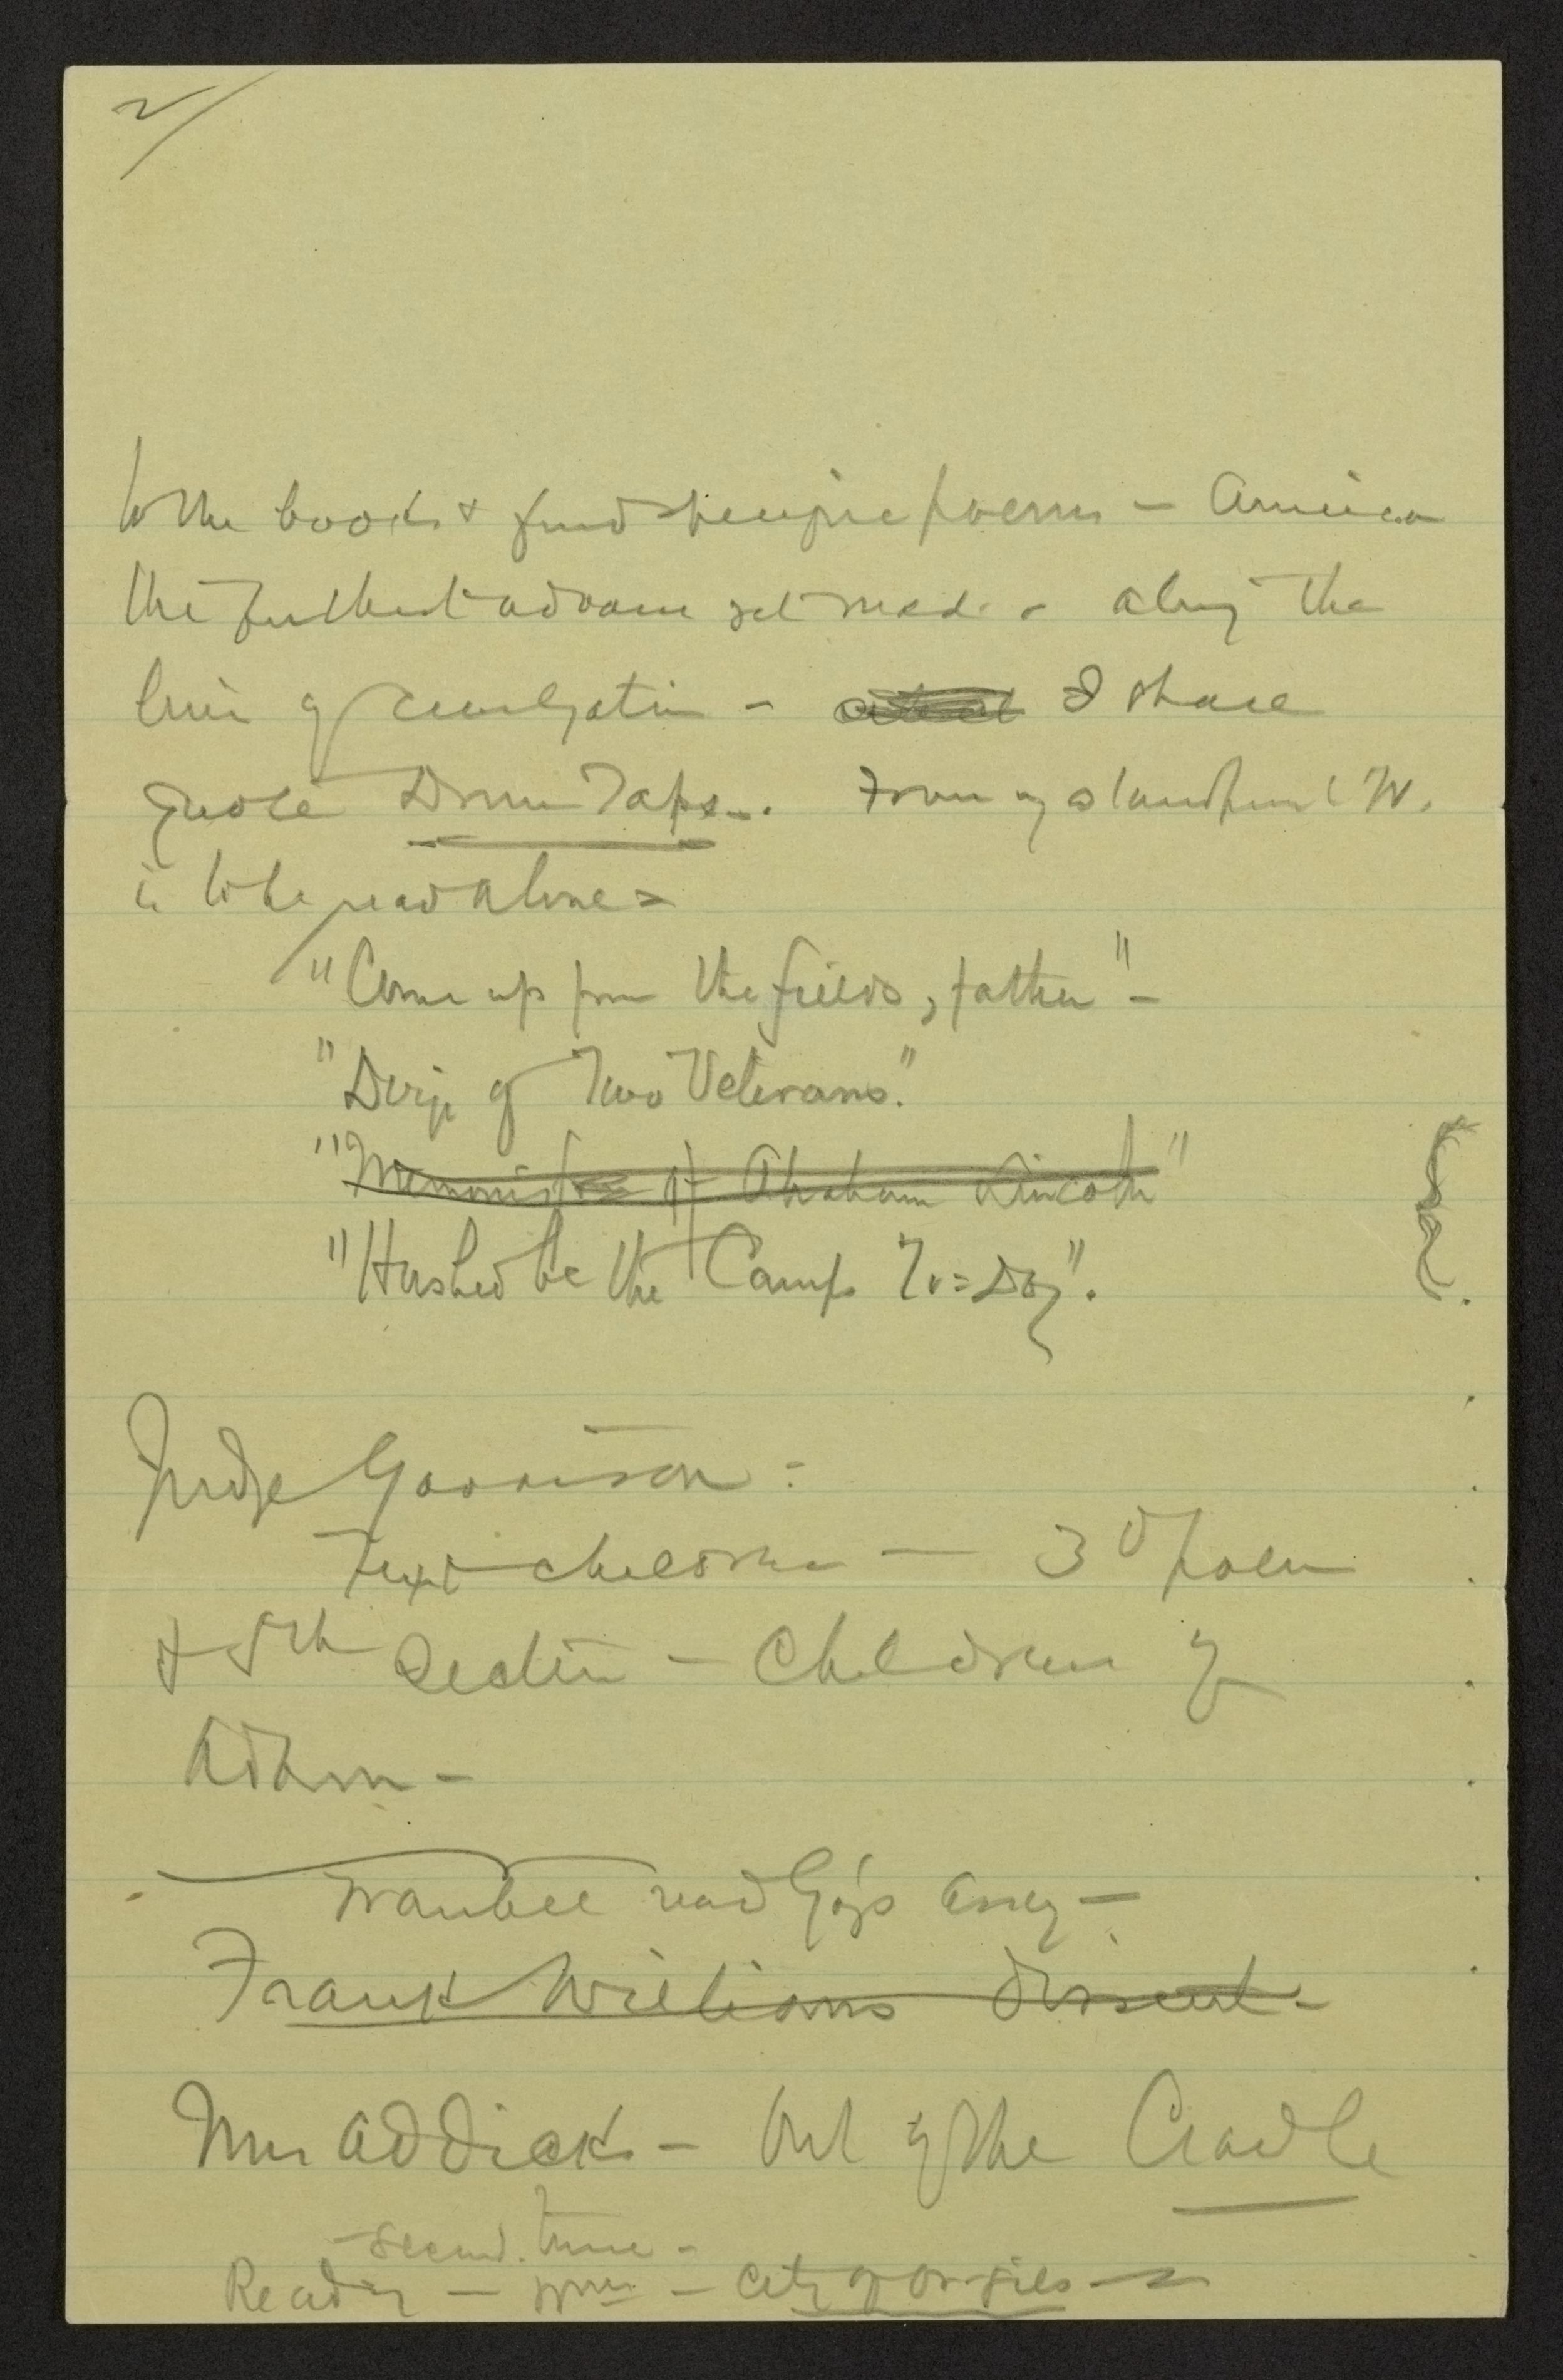 2/
to the books & find specific poems - America
the furthest advance yet made - along the
line of civilization - I shall
quote Drum Taps. From my standpoint W.
is to be read alone =
"Come up from the fields, father" -
"Dirge of Two Veterans."
"Memories of Abraham Lincoln"
"Hushed be the Camps To=Day".
Judge Garrison:
Text children — 3d poem
& 5th Section - Children of
Adam -
Traubel read Gay's essay -
Frank Williams dissent -
Mrs Addicks - Out of the Cradle
- second time -
Reading - - City of orgies -